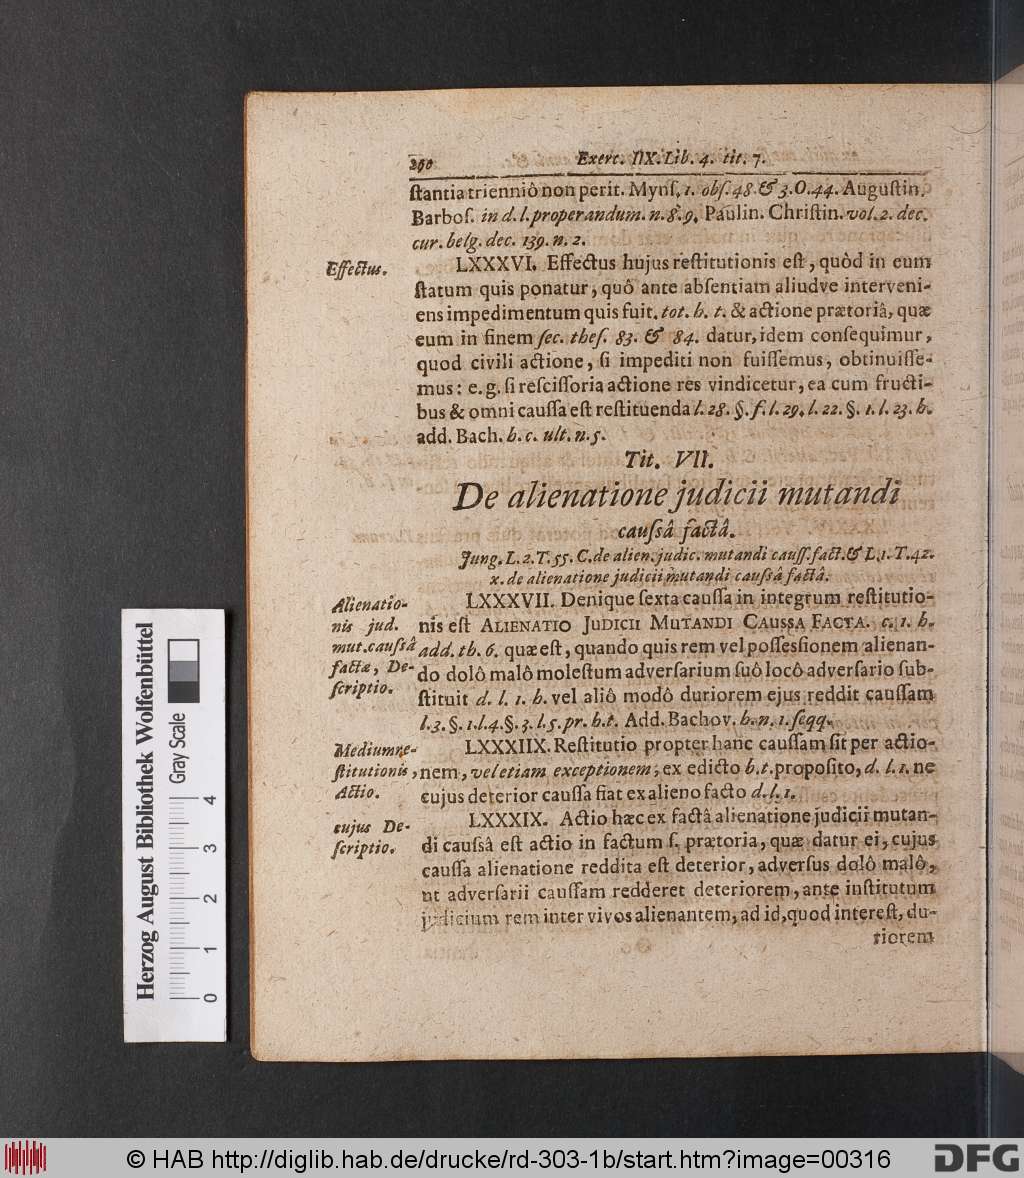 260 Exerc. IIX. Lib. 4. tit. 7.
ſtantia trienniô non perit. Mynſ. 1. obſ. 48. & 3. O. 44. Auguſtin.
Barboſ. in d. l. properandum. n. 8. 9. Paulin. Chriſtin. vol. 2. dec.
cur. belg. dec. 139. n. 2.
Effectus.
LXXXVI. Effectus hujus reſtitutionis eſt, quòd in eum
ſtatum quis ponatur, quô ante abſentiam aliudve interveni-
ens impedimentum quis fuit. tot. h. t. & actione prætoriâ, quæ
eum in finem ſec. theſ. 83. & 84. datur, idem conſequimur,
quod civili actione, ſi impediti non fuiſſemus, obtinuiſſe-
mus: e. g. ſi reſciſſoria actione res vindicetur, ea cum fructi-
bus & omni cauſſa eſt reſtituenda l. 28. §. f. l. 29. l. 22. §. 1. l. 23. h.
add. Bach. h. c. ult. n. 5.
Tit. VII.
De alienatione judicii mutandi
cauſsâ factâ.
Jung. L. 2. T. 55. C. de alien. judic. mutandi cauſſ. fact. & L. 1. T. 42.
x. de alienatione judicii mutandi cauſsâ factâ.
Alienatio-
nis jud.
mut. cauſsâ
factæ, De-
ſcriptio.
LXXXVII. Denique ſexta cauſſa in integrum reſtitutio-
nis eſt ALIENATIO JUDICII MUTANDI CAUSSA FACTA. c. 1. h.
add. th. 6. quæ eſt, quando quis rem vel poſſeſſionem alienan-
do dolô malô moleſtum adverſarium ſuô locô adverſario ſub-
ſtituit d. l. 1. h. vel aliô modô duriorem ejus reddit cauſſam
l. 3. §. 1. l. 4. §. 3. l. 5. pr. h. t. Add. Bachov. h. n. 1. ſeqq.
Medium re-
ſtitutionis,
Actio.
LXXXIIX. Reſtitutio propter hanc cauſſam fit per actio-
nem, vel etiam exceptionem, ex edicto h. t. propoſito, d. l. 1. ne
cujus deterior cauſſa fiat ex alieno facto d. l. 1.
cujus De-
ſcriptio.
LXXXIX. Actio hæc ex factâ alienatione judicii mutan-
di cauſsâ eſt actio in factum ſ. prætoria, quæ datur ei, cujus
cauſſa alienatione reddita eſt deterior, adverſus dolô malô,
ut adverſarii cauſſam redderet deteriorem, ante inſtitutum
judicium rem inter vivos alienantem, ad id, quod intereſt, du-
riorem
Herzog August Bibliothek Wolfenbüttel
Gray Scale
0 1 2 3 4
© HAB http://diglib.hab.de/drucke/rd-303-1b/start.htm?image=00316
DFG